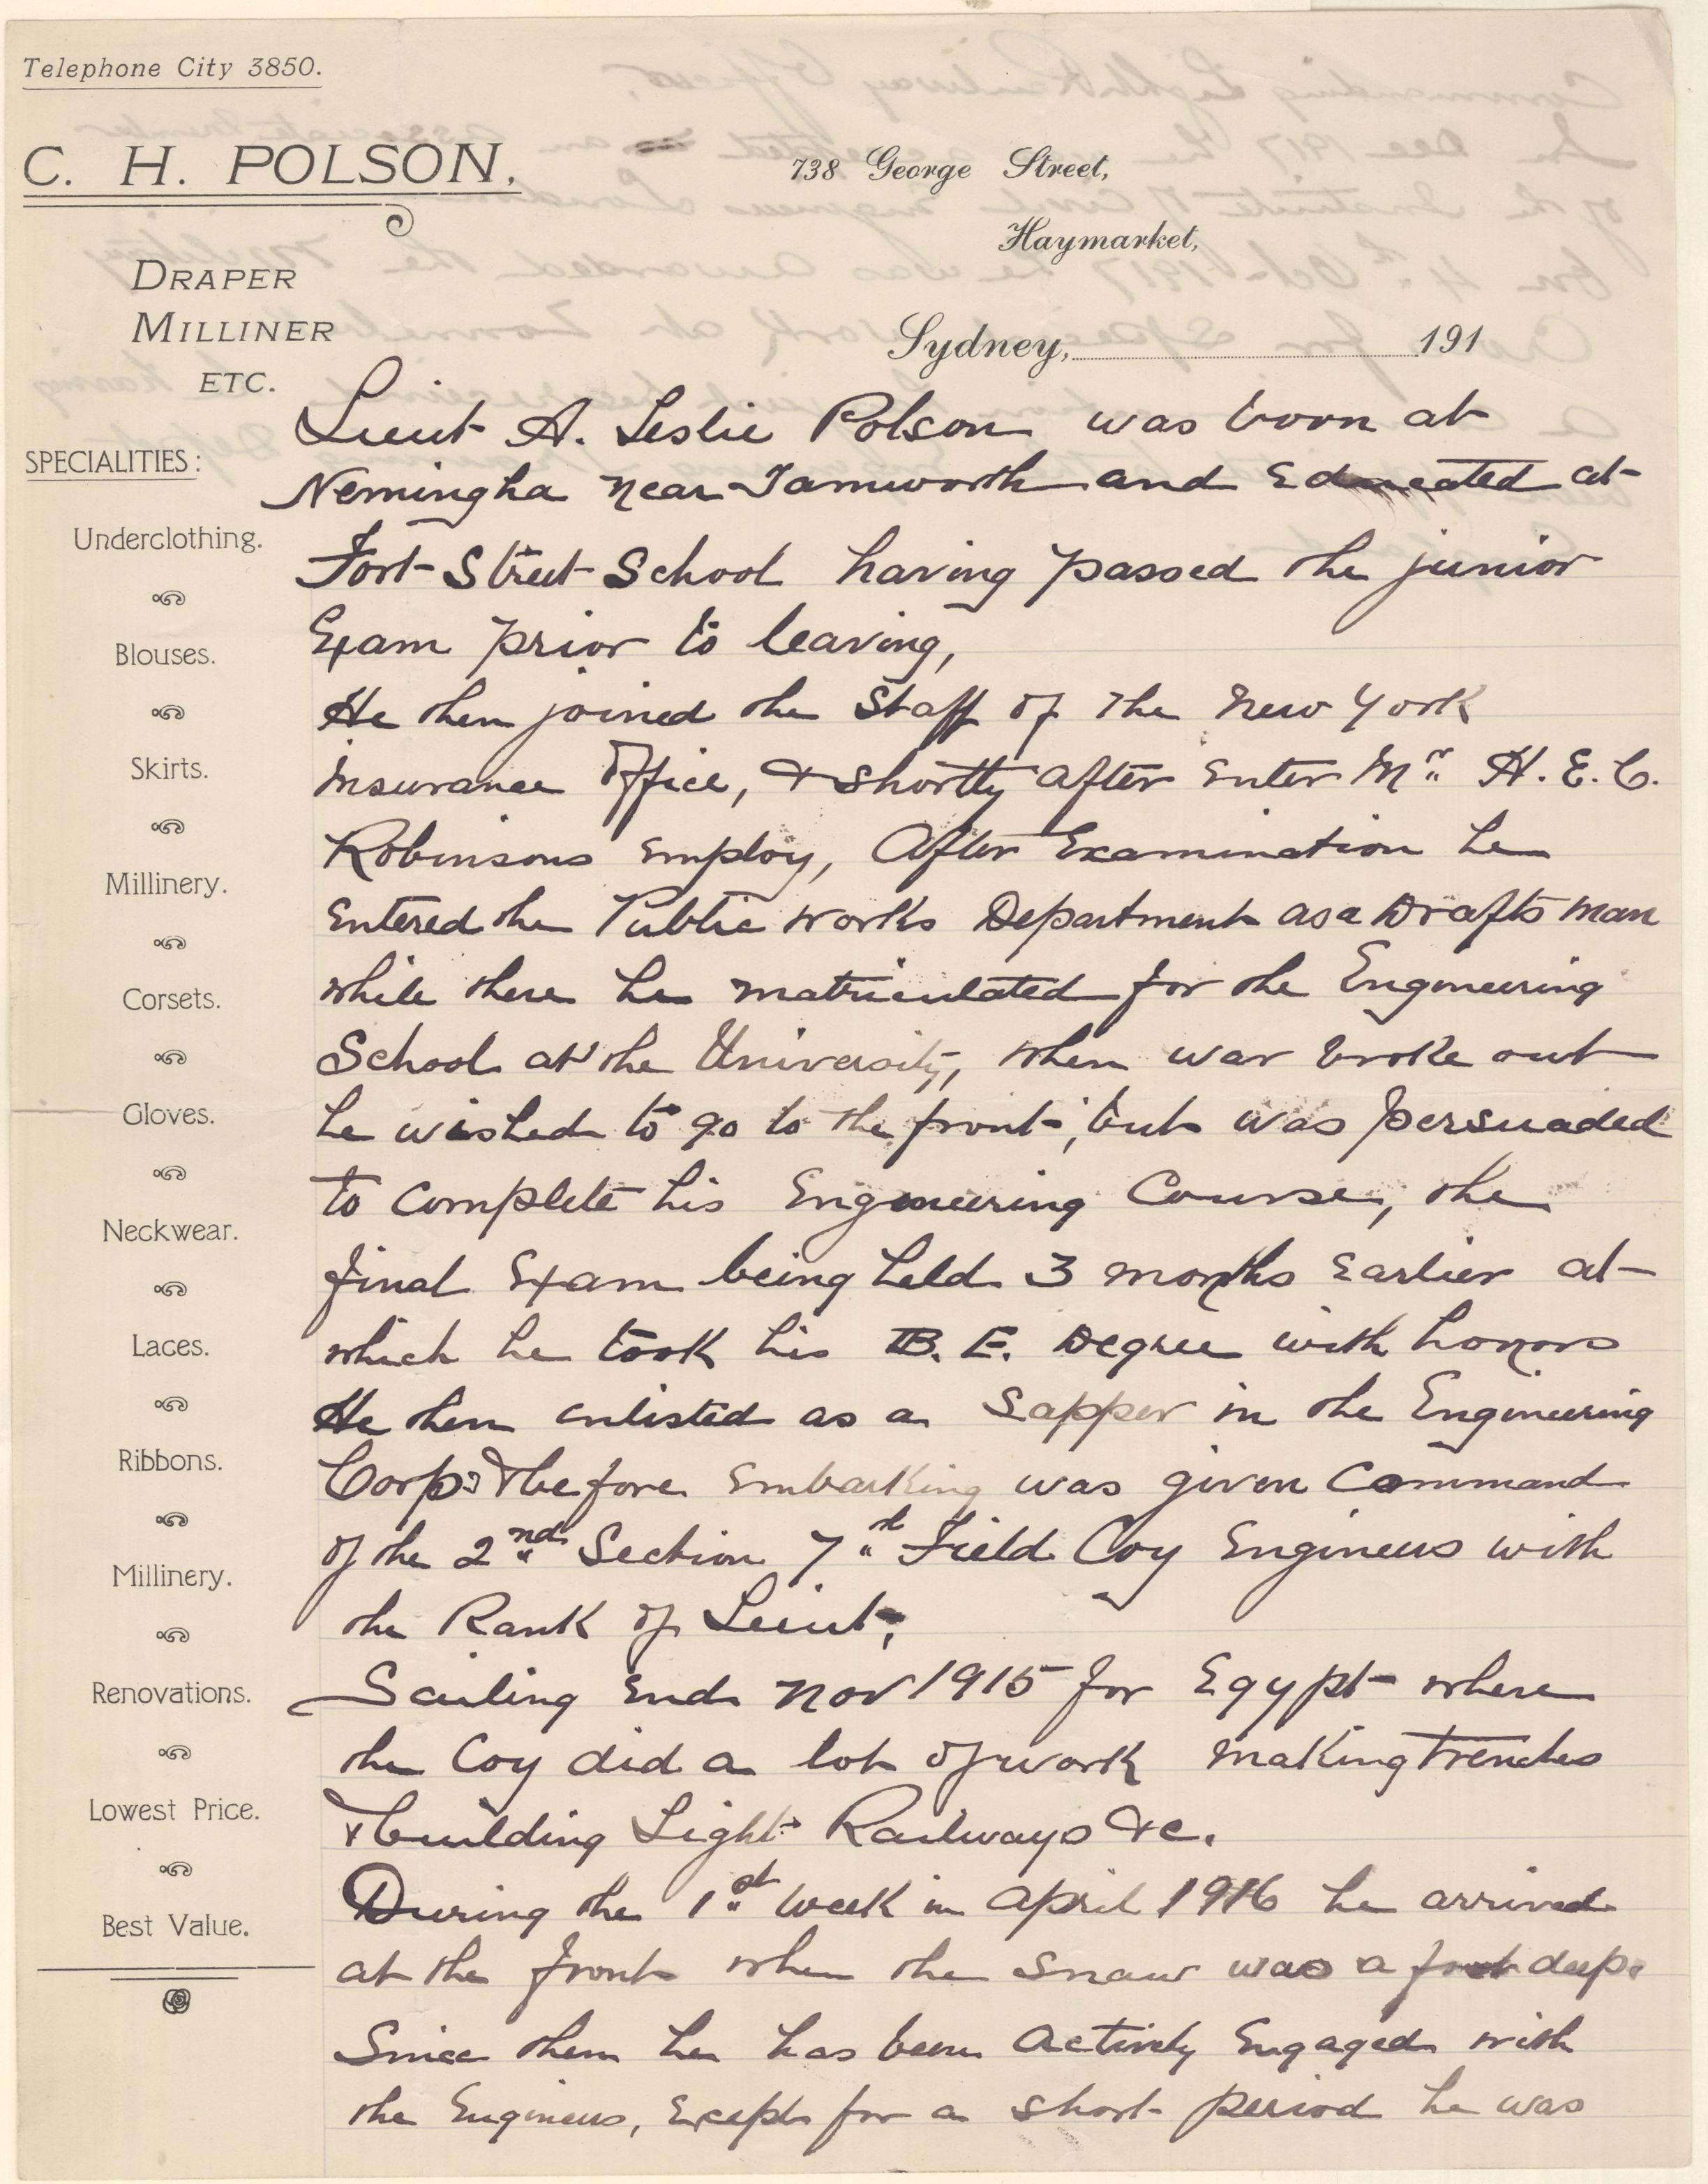 Telephone City 3850.
C. H. POLSON,
738 George Street,
Haymarket,
DRAPER
MILLINER
ETC.
Sydney, 191
SPECIALITIES:
Underclothing.
Blouses.
Skirts.
Millinery.
Corsets.
Gloves.
Neckwear.
Laces.
Ribbons.
Millinery.
Renovations.
Lowest Price.
Best Value.
Lieut A. Leslie Polson was born at
Nemingha near Tamworth and Educated at
Fort Street School having passed the junior
Exam prior to leaving,
He then joined the Staff of the New York
Insurance Office, & shortly after enter Mr. H. E. C.
Robinsons employ, After Examination he
Entered the Public works Department as a Drafts man
while there he matriculated for the Engineering
School at the University, when war broke out
he wished to go to the front, but was persuaded
to complete his Engineering Course, the
final Exam being held 3 months Earlier at
which he took his B. E. Degree with honors
He then enlisted as a Sapper in the Engineering
Corps & before Embarking was given Command
of the 2nd Section 7th Field Coy Engineers with
the Rank of Lieut,
Sailing End Nov 1915 for Egypt where
the Coy did a lot of work making trenches
& building Light Railways &c.
During the 1st week in April 1916 he arrived
at the front when the snaw was a foot deep.
Since then he has been Actively Engaged with
the Engineers, Except for a short period he was